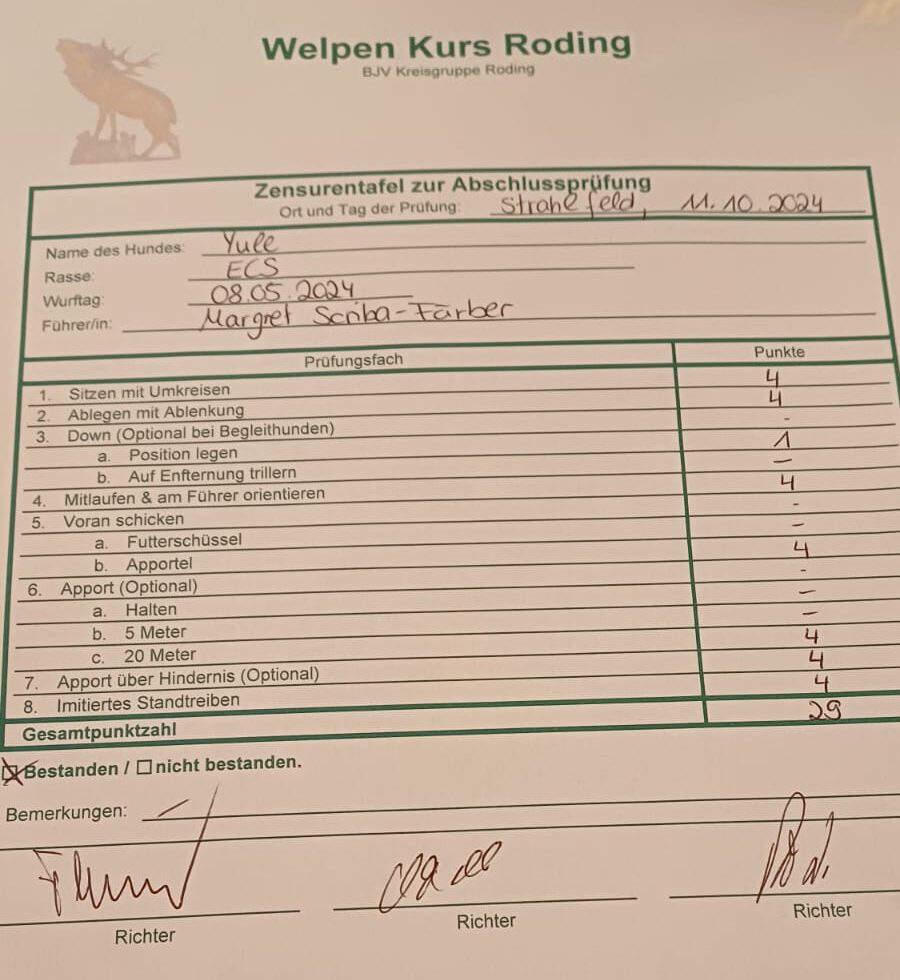 Welpen Kurs Roding
BJV Kreisgruppe Roding
Zensurentafel zur Abschlussprüfung
Ort und Tag der Prüfung: Strahlfeld, 11.10.2024
Name des Hundes: Yule
Rasse: ECS
Wurftag: 08.05.2024
Führer/in: Margret Scriba-Färber
Prüfungsfach Punkte
1. Sitzen mit Umkreisen 4
2. Ablegen mit Ablenkung 4
3. Down (Optional bei Begleithunden) -
a. Position legen 1
b. Auf Enfternung trillern -
4. Mitlaufen & am Führer orientieren 4
5. Voran schicken -
a. Futterschüssel -
b. Apportel 4
6. Apport (Optional) -
a. Halten -
b. 5 Meter -
c. 20 Meter 4
7. Apport über Hindernis (Optional) 4
8. Imitiertes Standtreiben 4
Gesamtpunktzahl 29
☒ Bestanden / ☐ nicht bestanden.
Bemerkungen: /
Richter Richter Richter